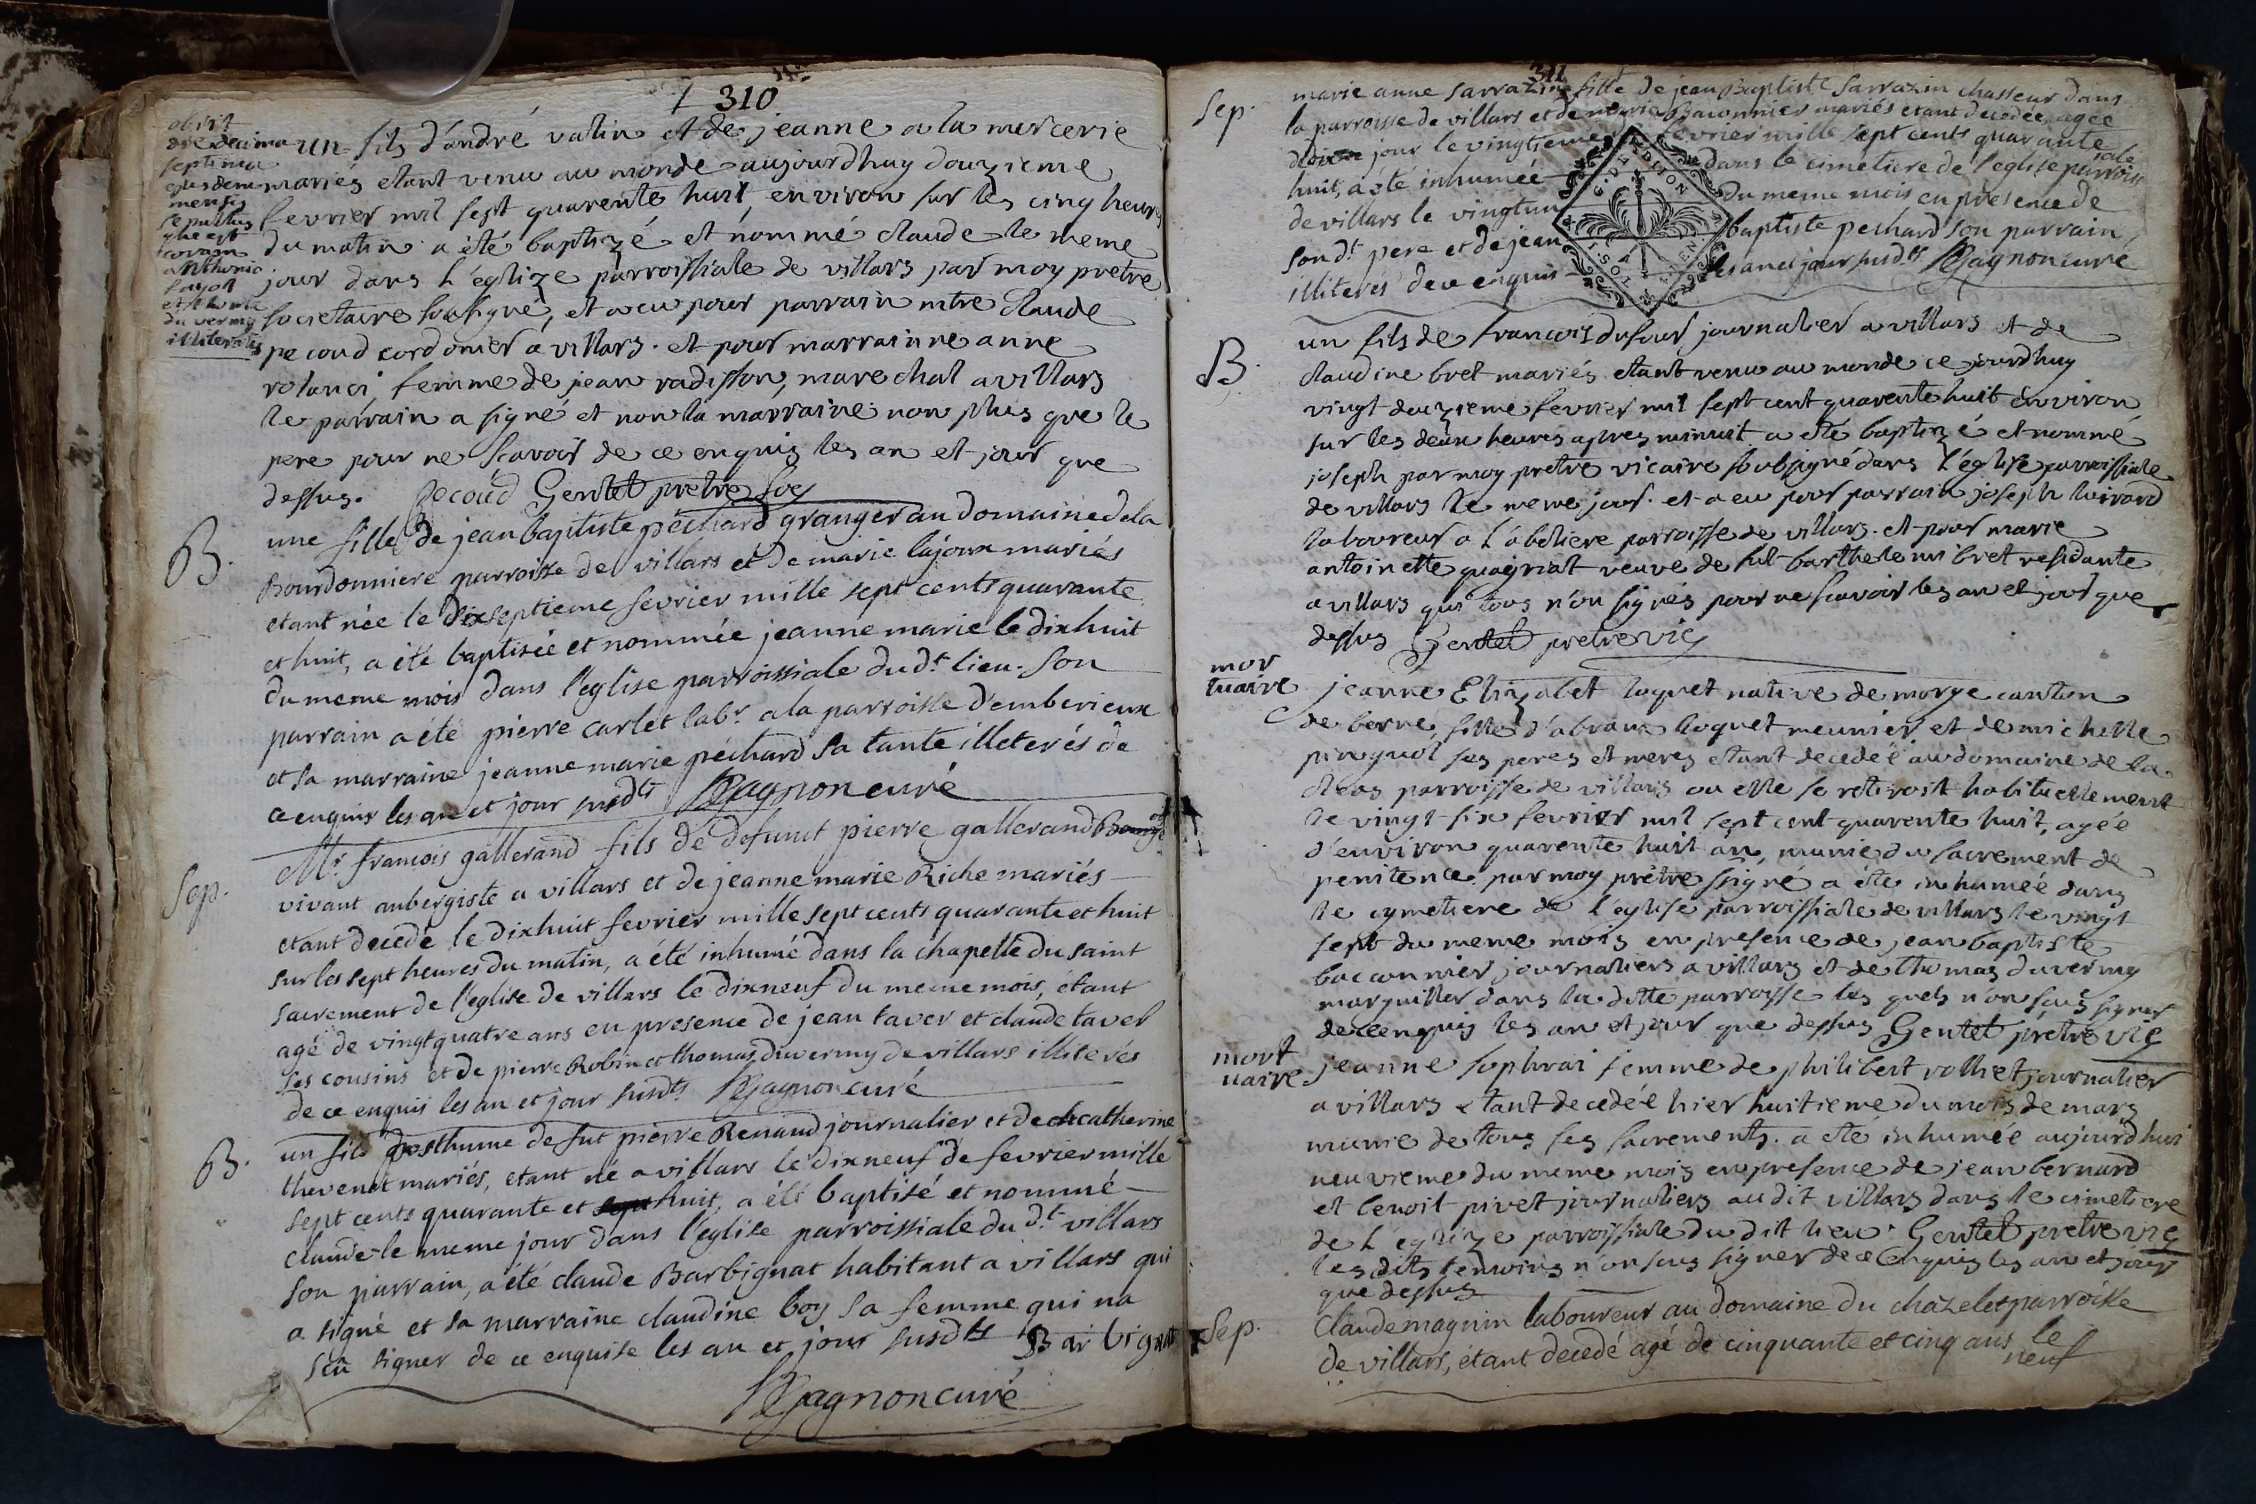 310
obiit
die decima
septima
ejusdem
mensis
sepultus
que est
coram
anthonio
fayol
et thoma
du vermy
illiteratis
un fils d'andré vatin et de jeanne a la mercerie
mariés etant venu au monde aujourdhuy douzieme
fevrier mil sept quarente huit, environ sur les cinq heures
du matin a été baptizé et nommé claude le meme
jour dans l'églize parroissiale de villars par moy prètre
societaire sousigné, et a eu pour parrain mtre claude
pecoud cordonier a villars. et pour marrainne anne
femme de jean radisson, marechal a villars
le parrain a signé et non la marraine non plus que le
pere pour ne scavoir de ce enquis les an et jour que
dessus. Pecoud Gentet prètre soc
B.
une fille de jean baptiste péchard granger au domaine de la
Bourdonniere parroisse de villars et de marie lajoux mariés
etant née le dixseptieme fevrier mille sept cents quarante
et huit, a été baptisée et nommée jeanne marie le dixhuit
du meme mois dans l'eglise parroissiale du dt lieu. Son
parrain a été pierre carlet labr. a la parroisse d'emberieux
et sa marraine jeanne marie péchard sa tante illeterés de
ce enquis les an et jour susdts Gagnon curé
Sep.
Mr. francois gallerand fils de defunct pierre gallerand
vivant aubergiste a villars et de jeanne marie Riche mariés
etant decedé le dixhuit fevrier mille sept cents quarante et huit
sur les sept heures du matin, a été inhumé dans la chapelle du saint
sacrement de l'eglise de villars le dixneuf du meme mois, étant
agé de vingtquatre ans en presence de jean taver et claude tavel
ses cousins et de pierre Robin et thomas duvermy de villars illiterés
de ce enquis les an et jour susdts Gagnon curé
B.
un fils posthume de fut pierre Renaud journalier et de catherine
thevenet mariés, etant né a villars le dixneuf de fevrier mille
sept cents quarante et huit, a été baptisé et nommé
claude le meme jour dans l'eglise parroissiale du dt. villars
son parrain, a été claude Barbignat habitant a villars qui
a signé et sa marraine claudine boy sa femme qui na
scu signer de ce enquise les an et jour susdts Barbignat
Gagnon curé
311
Sep.
marie anne Sarrazin fille de jean Baptiste Sarrazin chasseur dans
la parroisse de villars et de marie Baconnier mariés etant decedée, agée
jour le vingtieme fevrier mille sept cents quarante
huit, a été inhumée dans le cimetiere de l'eglise parroissiale
de villars le vingtun du meme mois en presence de
son dt. pere et de jean baptiste pechard son parrain
illiterés de ce enquis les an et jour susdts Gagnon curé
G. DE DIJON
B.
un fils de francois dufour journalier a villars et de
claudine bret mariés etant venu au monde ce jourdhuy
vingt deuzieme fevrier mil sept cent quarente huit environ
sur les deux heures apres minuit a eté baptizé et nommé
joseph par moy pretre vicaire soubsigné dans l'église parroissiale
de villars le meme jour. et a eu pour parrain joseph
laboureur a l'abeliere parroisse de villars. et pour marie
antoinette veuve de fut barthelemi bret residante
a villars qui tous n'on signés pour ne scavoir les an et jour que
dessus Gentet pretre vic
mor
tuaire
jeanne Elizabet loquet native de morge canton
de berne, fille d'abram loquet meunier et de michelle
ses peres et meres etant decedéé au domaine de la
parroisse de villars ou elle se retiroit habituelement
le vingt-six fevrier mil sept cent quarente huit, agéé
d'environ quarente huit an, munie du sacrement de
penitence par moy prètre signé a éte inhuméé dans
le cymetiere de l'eglise parroissiale de villars le vingt
sept du meme mois en presence de jean baptiste
baconnier journaliers a villars et de thomas duvermy
marguiller dans la ditte parroisse les quels n'on scus signer
de ce enquis les an et jour que dessus Gentet prètre vic
mort
uaire
jeanne femme de philibert volliet journalier
a villars etant decedéé hier huitieme du mois de mars
munie de tous ses sacrements. a eté inhuméé aujourdhui
neuvieme du meme mois en presence de jean bernard
et benoit pivet journaliers au dit villars dans le cimetiere
de l'eglize parroissiale du dit lieu. Gentet pretre vic
les dits temoins n'on scus signer de ce enquis les an et jour
que dessus
Sep.
Claude magnin laboureur au domaine du chazelet parroisse
de villars, étant decedé agé de cinquante et cinq ans le
neuf